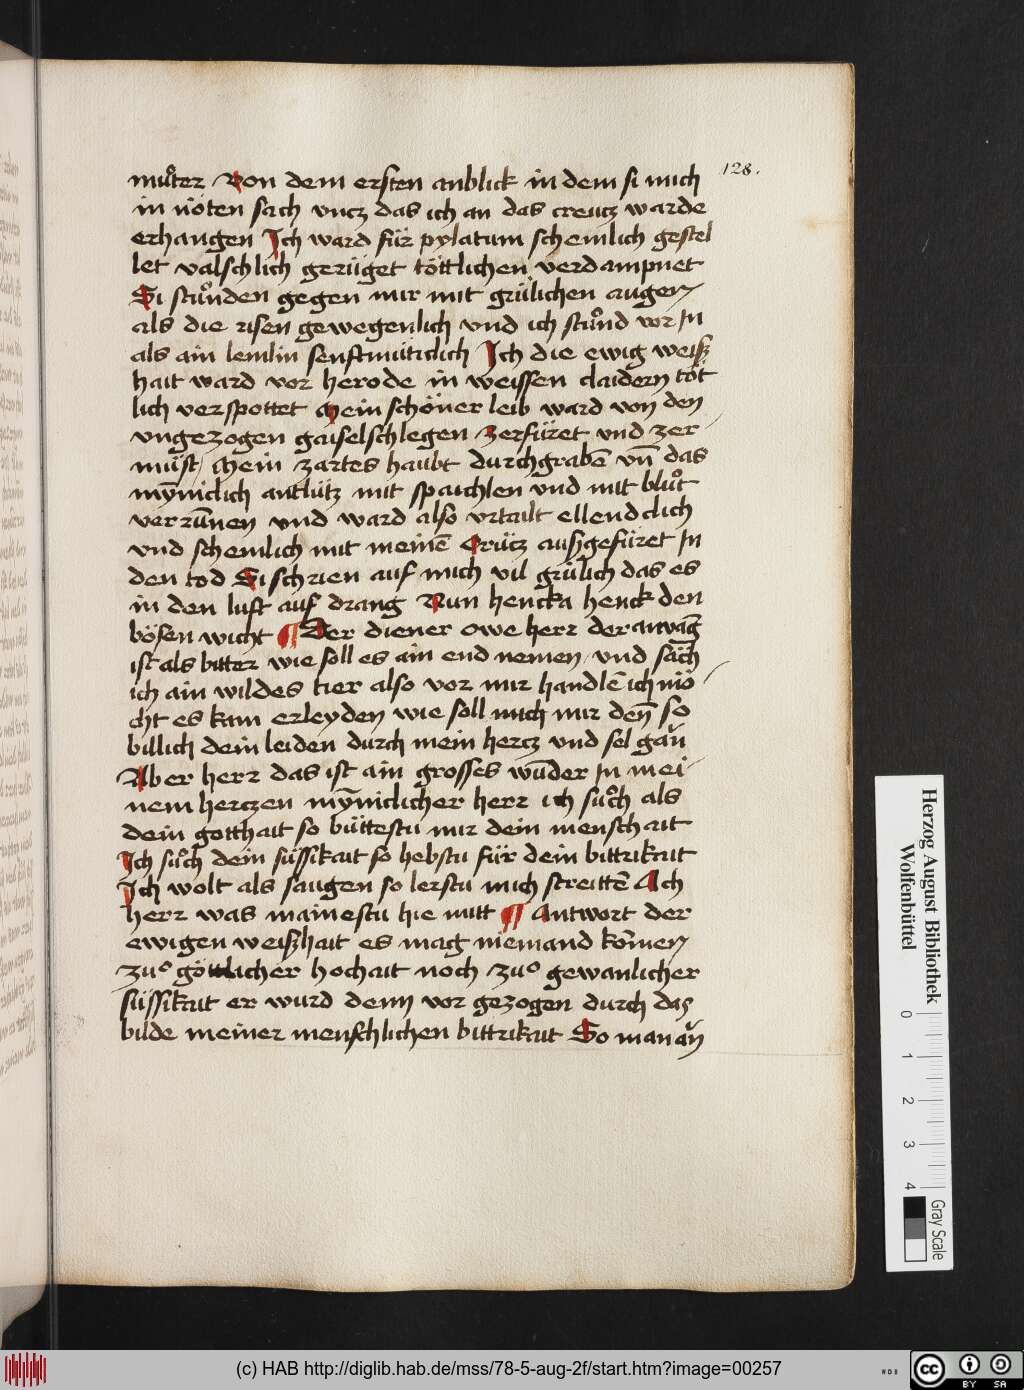 128.
můter Von dem ersten anblick in dem si mich
in nöten sach vncz das ich an das creucz warde
erhangen Ich ward für pylatum schemlich gestel
let valschlich gerüget töttlichen verdampnet
Si stůnden gegen mir mit grülichen augen
als die risen gewegenlich vnd ich stůnd vor In
als ain lemlin senftmüticlich Ich die ewig weiſz
hait ward vor herode in weissen claidern töt
lich verspottet Mein schöner leib ward von den
vngezogen gaiselschlegen Zerfüret vnd zer
müst / Mein zartes haubt durchgrabē vn̄ das
mȳniclich antlütz mit spaichlen vnd mit blůt
verrunnen vnd ward also vrtailt ellendclich
vnd schemlich mit meinē Crütz auſzgefüret In
den tod Si schrien auf mich vil grülich das es
in den luft auf drang Nun hencka henck den
bösen wicht ¶ Der diener owe herr der anvāg
ist als bitter wie soll es ain end nemen / vnd säch
ich ain wildes tier also vor mir handlē ich mö
cht es kam erleyden wie soll mich mir den̄ so
billich dein leiden durch mein hercz vnd sel gān
Aber herr das ist ain grosses wūder In mei
nem herczen mȳniclicher herr ich sůch als
dein gotthait so büttestu mir dein menschait
Ich sůch dein süssikait so hebstu für dein bittrikait
Ich wolt als saugen so lerstu mich streittē Ach
herr was mainestu hie mitt ¶ Antwort der
ewigen weiſzhait es mag niemand komen
zuͦ göttlicher hochait noch zuͦ gewanlicher
süssikait er wurd denn vor gezogen durch das
bilde meiner menschlichen bittrikait So man ān
Herzog August Bibliothek
Wolfenbüttel
0 1 2 3 4
Gray Scale
(c) HAB http://diglib.hab.de/mss/78-5-aug-2f/start.htm?image=00257
cc BY SA